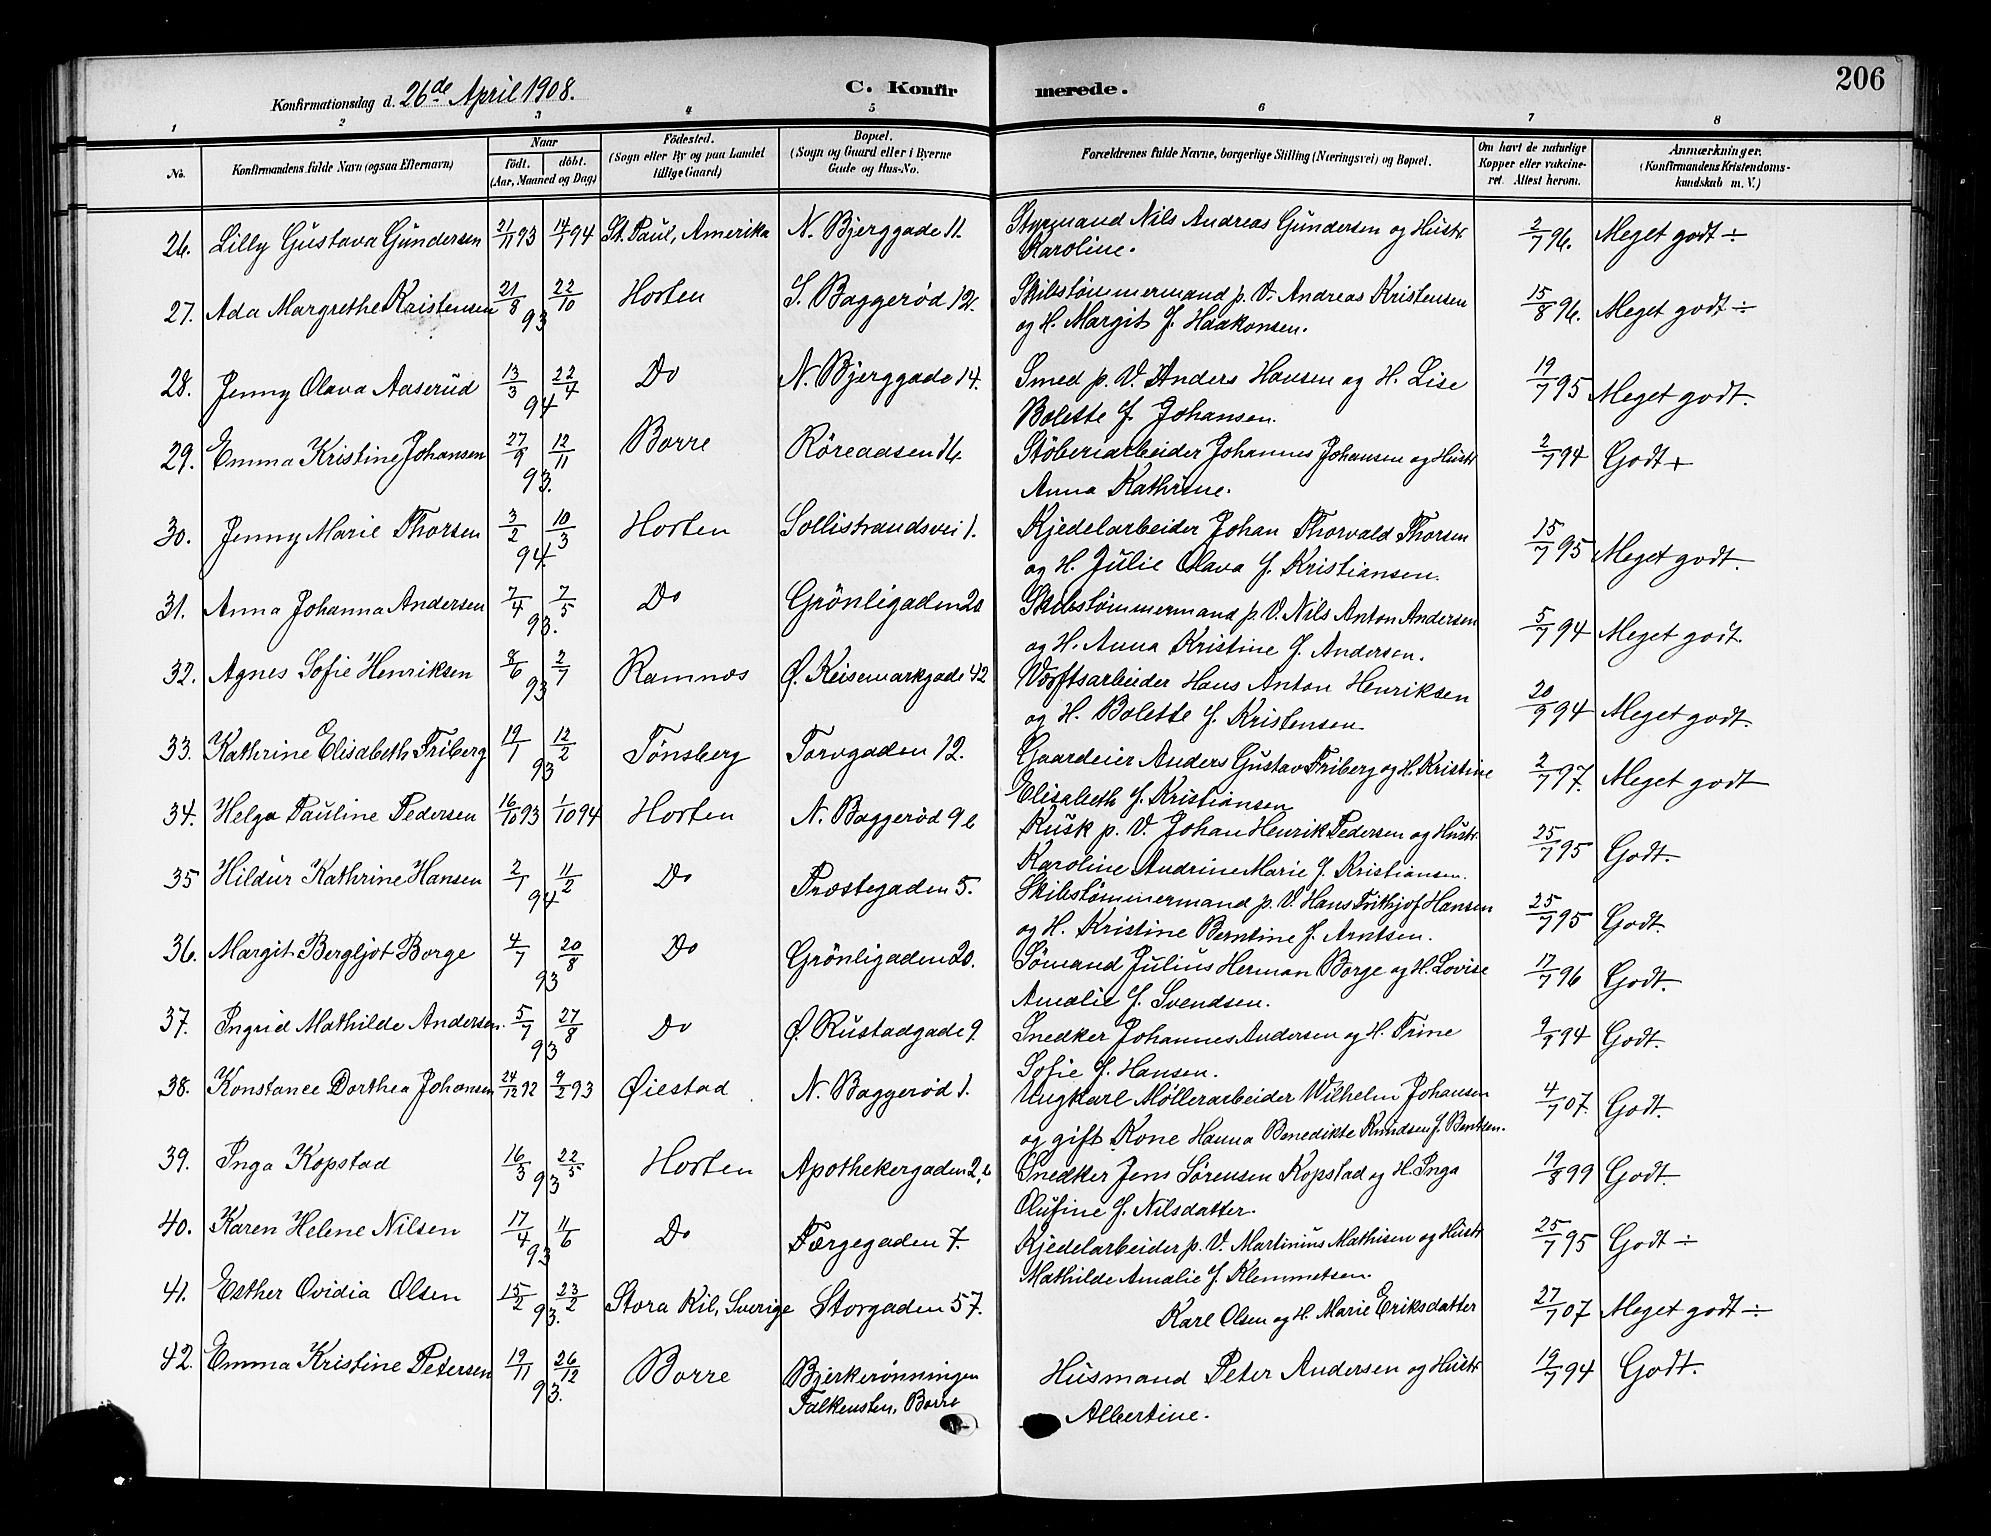 206
Konfirmationsdag d. 26de April 1908.
C. Konfirmerede.
1 2 3 4 5 6 7 8
No.
Konfirmandens fulde Navn (ogsaa Efternavn)
Naar
født. døbt.
(Aar, Maaned og Dag)
Födested.
(Sogn eller By og paa Landet
tillige Gaard)
Bopæl.
(Sogn og Gaard eller i Byerne
Gade og Hus-No.
Forældrenes fulde Navne, borgerlige Stilling (Næringsvei) og Bopæl.
Om havt de naturlige
Kopper eller vakcine-
ret. Attest herom.
Anmærkninger.
(Konfirmandens Kristendoms-
kundskab m. V.)
26. Lilly Gustava Gundersen 21/11 93 14/1 94 St. Paul, Amerika N. Bjerggade 11. Styrmand Nils Andreas Gundersen og Hustr. 2/7 96. Meget godt ÷
Karoline.
27. Ada Margrethe Kristensen 21/8 22/10 93 Horten S. Baggerød 12. Skibstømmermand p. V. Andreas Kristensen 15/8 96. Meget godt ÷
og H. Margit f. Haakonsen.
28. Jenny Olava Aaserud 13/3 22/4 94 Do N. Bjerggade 14. Smed p. V. Anders Hansen og H. Lise 19/7 95 Meget godt.
Bolette f. Johansen.
29. Emma Kristine Johansen 27/9 12/11 93. Borre Røreaasen 16. Støberiarbeider Johannes Johansen og Hustr 2/7 94 Godt +
Anna Kathrine.
30. Jenny Marie Thorsen 3/2 10/3 94. Horten Sollistrandsvei 1. Kjedelarbeider Johan Thorvald Thorsen 15/7 95 Meget godt.
og H. Julie Olava f. Kristiansen.
31. Anna Johanna Andersen 7/4 7/5 93. Do Grönligaden 20 Skibstømmermand p. V. Nils Anton Andersen 5/7 94 Meget godt.
og H. Anna Kristine f. Andersen.
32. Agnes Sofie Henriksen 8/6 2/7 93 Ramnes Ø. Keisemarkgade 42 Værftsarbeider Hans Anton Henriksen 20/9 94 Meget godt.
og H. Bolette f. Kristensen.
33. Kathrine Elisabeth Friberg 19/1 12/2 93 Tønsberg Torvgaden 12. Gaardeier Anders Gustav Friberg og H. Kristine 2/7 97. Meget godt
Elisabeth f. Kristiansen
34. Helga Pauline Pedersen 16/10 93 1/10 94 Horten N. Baggerød 9 b Kusk p. V. Johan Henrik Pedersen og Hustr. 25/7 95 Godt.
Karoline Andrine Marie f. Kristiansen.
35 Hildur Kathrine Hansen 2/1 11/2 94 Do Præstegaden 5. Skibstømmermand p. V. Hans Frithjof Hansen 25/7 95 Godt.
og H. Kristine Berntine f. Arntsen.
36. Margit Bergljot Borge 4/7 20/8 93 Do Grönligaden 20. Sømand Julius Herman Borge og H. Lovise 17/7 96 Godt.
Amalie f. Svendsen.
37. Ingrid Mathilde Andersen. 5/7 27/8 93 Do Ø. Rustadgade 9. Snedker Johannes Andersen og H. Trine 9/9 94 Godt.
Sofie f. Hansen.
38. Konstance Dorthea Johansen 24/12 92 9/2 93 Øiestad N. Baggerød 1. Ungkarl Møllerarbeider Wilhelm Johansen 4/7 07. Godt.
og gift Kone Hanna Benedikte Knudsen f. Bentsen.
39. Inga Kopstad 16/3 22/5 93 Horten Apothekergaden 2 b Snedker Jens Sørensen Kopstad og H. Inga 19/8 99 Godt.
Olufine f. Nilsdatter.
40. Karen Helene Nilsen 17/4 11/6 93 Do Færgegaden 7. Kjedelarbeider p. V. Martinius Mathisen og Hustr 25/7 95 Godt ÷
Mathilde Amalie f. Klemmetsen.
41. Esther Ovidia Olsen 15/2 23/2 93. Stora Kil, Sverige Storgaden 57. Karl Olsen og H. Marie Eriksdatter 27/7 07 Meget godt ÷
42. Emma Kristine Petersen 19/11 26/12 93. Borre Bjerkerønningen Husmand Peter Andersen og Hustr 19/7 94 Godt.
Falkensten, Borre Albertine.